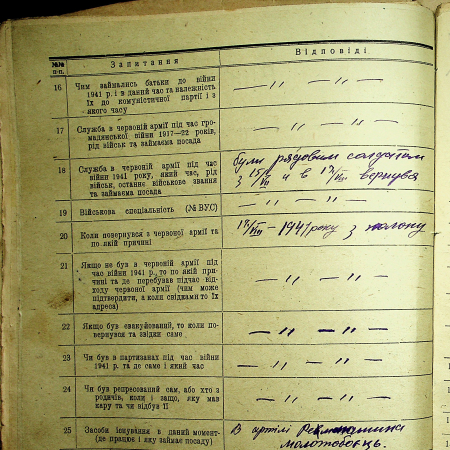 №№ п-п.
Запитання
Відповіді
16 Чим займались батьки до війни
1941 р. і в даний час та належність
їх до комуністичної партії і з
якого часу
— " — " —
17 Служба в червоній армії під час гро-
мадянської війни 1917—22 років,
рід військ та займаєма посада
— " — " —
18 Служба в червоній армії під час
війни 1941 року, який час, рід
військ, останнє військове звання
та займаєма посада
був рядовим солдатом
з 15/VII и в 17/VIII вернувся
19 Військова спеціальність (№ ВУС)
— " — " —
20 Коли повернувся з червоної армії та
по якій причині
17/VIII — 1941 року з полону
21 Якщо не був в червоній армії під
час війни 1941 р., то по якій при-
чині та де перебував підчас від-
ходу червоної армії (чим може
підтвердити, а коли свідками то їх
адреса)
— " — " —
22 Якщо був евакуйований, то коли по-
вернувся та звідки саме
— " — " —
23 Чи був в партизанах під час війни
1941 р. та де саме і який час
— " — " —
24 Чи був репресований сам, або хто з
родичів, коли і защо, яку мав
кару та чи відбув її
— " — " —
25 Засоби існування в даний момент-
(де працює і яку займає посаду)
В артілі
молотобоєць.